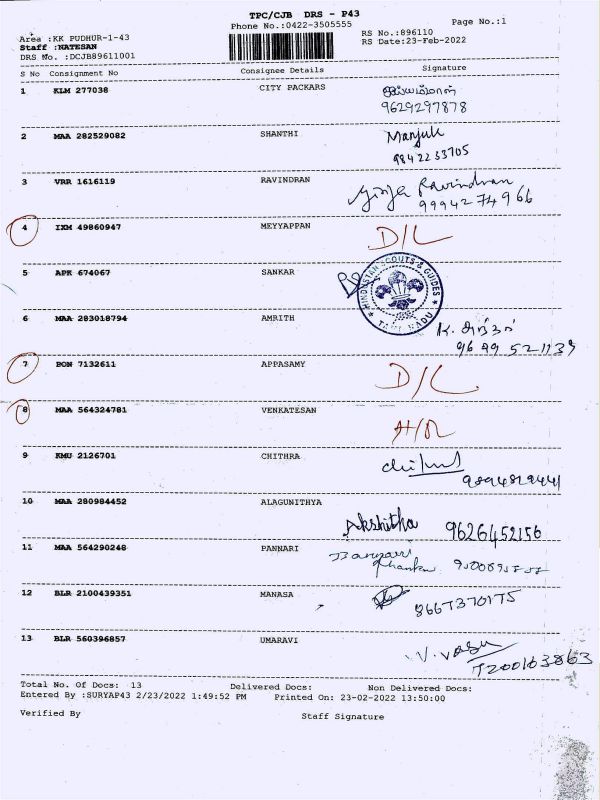 TPC/CJB DRS - P43
Phone No.:0422-3505555
Page No.:1
Area :KK PUDHUR-1-43
RS No.:896110
Staff :NATESAN
RS Date:23-Feb-2022
DRS No. :DCJB89611001
S No Consignment No Consignee Details Signature
1 KLM 277038 CITY PACKARS
9629297878
2 MAA 282529082 SHANTHI Manjuli
9842233705
3 VRR 1616119 RAVINDRAN Ravindran
9994274966
4 IXM 49860947 MEYYAPPAN D/L
5 APK 674067 SANKAR
HINDUSTAN SCOUTS & GUIDES
TAMIL NADU
6 MAA 283018794 AMRITH
7 BON 7132611 APPASAMY D/L
8 MAA 564324781 VENKATESAN
9 KMU 2126701 CHITHRA
10 MAA 280984452 ALAGUNITHYA
Akshitha 9626452156
11 MAA 564290248 PANNARI
12 BLR 2100439351 MANASA
8667370175
13 BLR 560396857 UMARAVI
V. Vasu
7200163863
Total No. Of Docs: 13 Delivered Docs: Non Delivered Docs:
Entered By :SURYAP43 2/23/2022 1:49:52 PM Printed On: 23-02-2022 13:50:00
Verified By Staff Signature